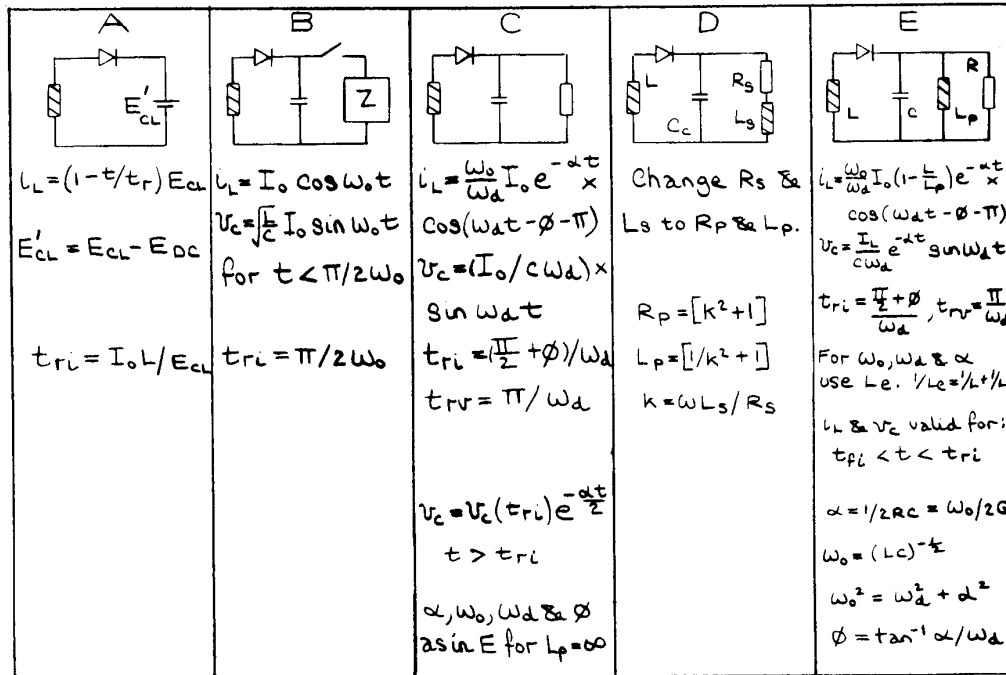 A
E'CL
iL = (1 - t/tr) ECL
E'CL = ECL - EDC
tri = I₀L/ECL
B
Z
iL = I₀ cos ω₀t
vc = √(L/C) I₀ sin ω₀t
for t < π/2ω₀
tri = π/2ω₀
C
iL = ω₀/ωd I₀ e^-αt ×
cos(ωdt - ø - π)
vc = (I₀/cωd) ×
sin ωdt
tri = (π/2 + ø)/ωd
trv = π/ωd
vc = vc(tri) e^-αt/2
t > tri
α, ω₀, ωd & ø
as in E for Lp = ∞
D
L
Rs
Cc
Ls
Change Rs &
Ls to Rp & Lp.
Rp = [k² + 1]
Lp = [1/k² + 1]
k = ωLs/Rs
E
R
L
C
Lp
iL = ω₀/ωd I₀ (1 - L/Lp) e^-αt ×
cos(ωdt - ø - π)
vc = IL/cωd e^-αt sin ωdt
tri = (π/2 + ø)/ωd, trv = π/ωd
For ω₀, ωd & α
use Le. 1/Le = 1/L + 1/L
iL & vc valid for:
tfi < t < tri
α = 1/2RC = ω₀/2G
ω₀ = (LC)^-½
ω₀² = ωd² + α²
ø = tan⁻¹ α/ωd